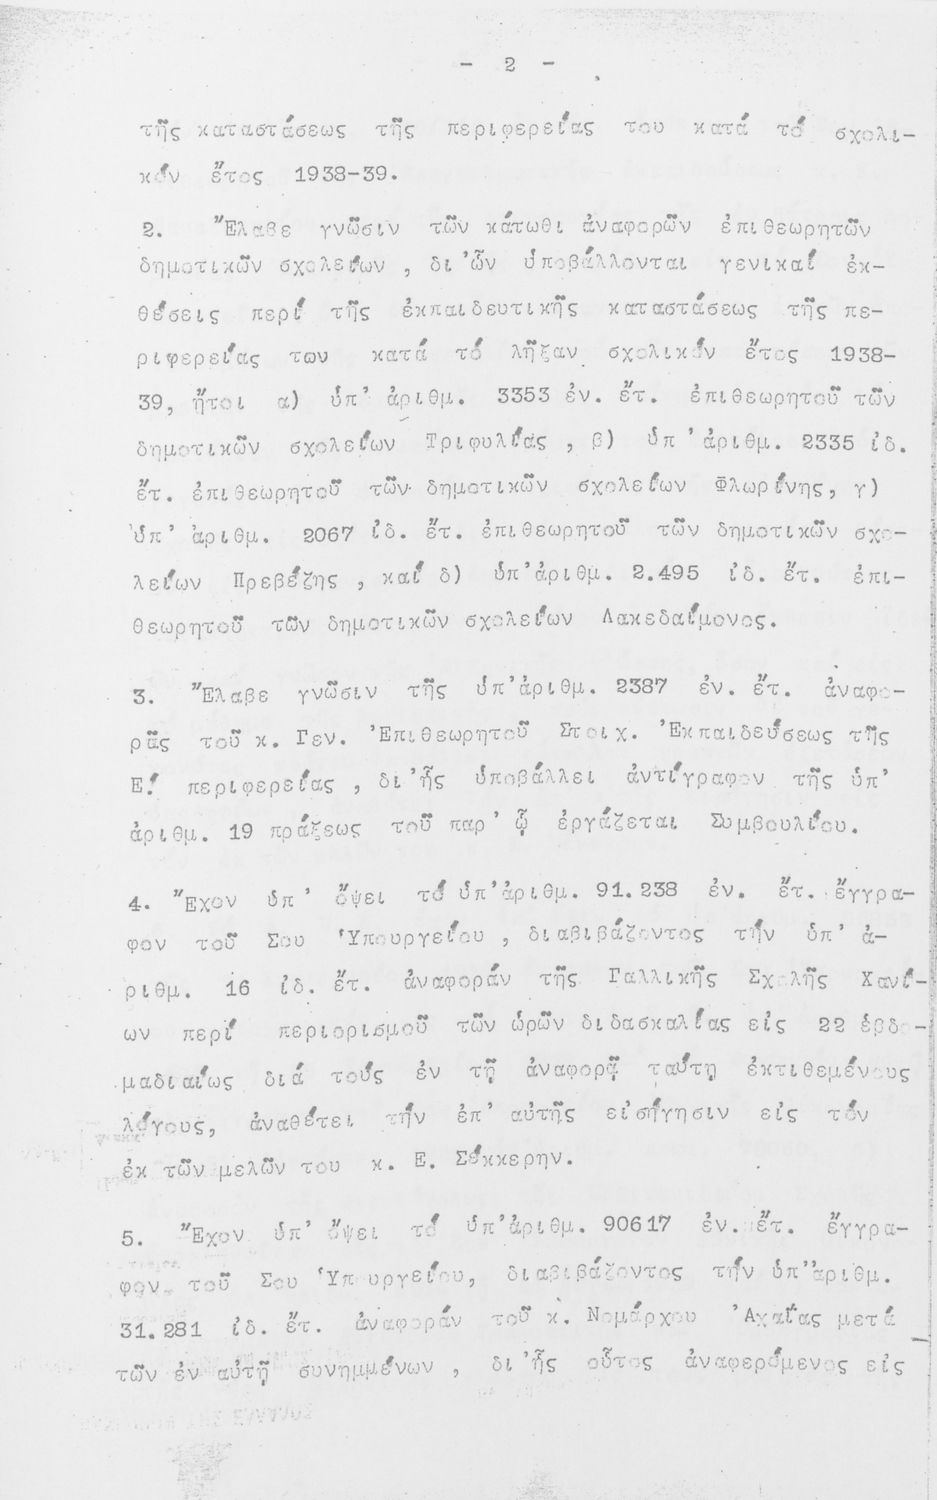 - 2 -
τῆς καταστάσεως τῆς περιφερείας του κατά τό σχολι-
κόν ἔτος 1938-39.
2. Ἔλαβε γνῶσιν τῶν κάτωθι ἀναφορῶν ἐπιθεωρητῶν
δημοτικῶν σχολείων , δι'ὧν ὑποβάλλονται γενικαί ἐκ-
θέσεις περί τῆς ἐκπαιδευτικῆς καταστάσεως τῆς πε-
ριφερείας των κατά τό λῆξαν σχολικόν ἔτος 1938-
39, ἤτοι α) ὑπ' ἀριθμ. 3353 ἐν. ἔτ. ἐπιθεωρητοῦ τῶν
δημοτικῶν σχολείων Τριφυλίας , β) ὑπ'ἀριθμ. 2335 ἰδ.
ἔτ. ἐπιθεωρητοῦ τῶν δημοτικῶν σχολείων Φλωρίνης, γ)
ὑπ' ἀριθμ. 2067 ἰδ. ἔτ. ἐπιθεωρητοῦ τῶν δημοτικῶν σχο-
λείων Πρεβέζης , καί δ) ὑπ'ἀριθμ. 2.495 ἰδ. ἔτ. ἐπι-
θεωρητοῦ τῶν δημοτικῶν σχολείων Λακεδαίμονος.
3. Ἔλαβε γνῶσιν τῆς ὑπ'ἀριθμ. 2387 ἐν. ἔτ. ἀναφο-
ρᾶς τοῦ κ. Γεν. Ἐπιθεωρητοῦ Στοιχ. Ἐκπαιδεύσεως τῆς
Ε! περιφερείας , δι'ἧς ὑποβάλλει ἀντίγραφον τῆς ὑπ'
ἀριθμ. 19 πράξεως τοῦ παρ' ᾧ ἐργάζεται Συμβουλίου.
4. Ἔχον ὑπ' ὄψει τό ὑπ'ἀριθμ. 91.238 ἐν. ἔτ. ἔγγρα-
φον τοῦ Σου Ὑπουργείου , διαβιβάζοντος τήν ὑπ' ἀ-
ριθμ. 16 ἰδ. ἔτ. ἀναφοράν τῆς Γαλλικῆς Σχολῆς Χανί-
ων περί περιορισμοῦ τῶν ὡρῶν διδασκαλίας εἰς 22 ἑβδο-
μαδιαίως διά τούς ἐν τῇ ἀναφορᾷ ταύτῃ ἐκτιθεμένους
λόγους, ἀναθέτει τήν ἐπ' αὐτῆς εἰσήγησιν εἰς τόν
ἐκ τῶν μελῶν του κ. Ε. Σέκκερην.
5. Ἔχον ὑπ' ὄψει τό ὑπ'ἀριθμ. 90617 ἐν. ἔτ. ἔγγρα-
φον τοῦ Σου Ὑπουργείου, διαβιβάζοντος τήν ὑπ'ἀριθμ.
31.281 ἰδ. ἔτ. ἀναφοράν τοῦ κ. Νομάρχου Ἀχαΐας μετά
τῶν ἐν αὐτῇ συνημμένων , δι'ἧς οὗτος ἀναφερόμενος εἰς